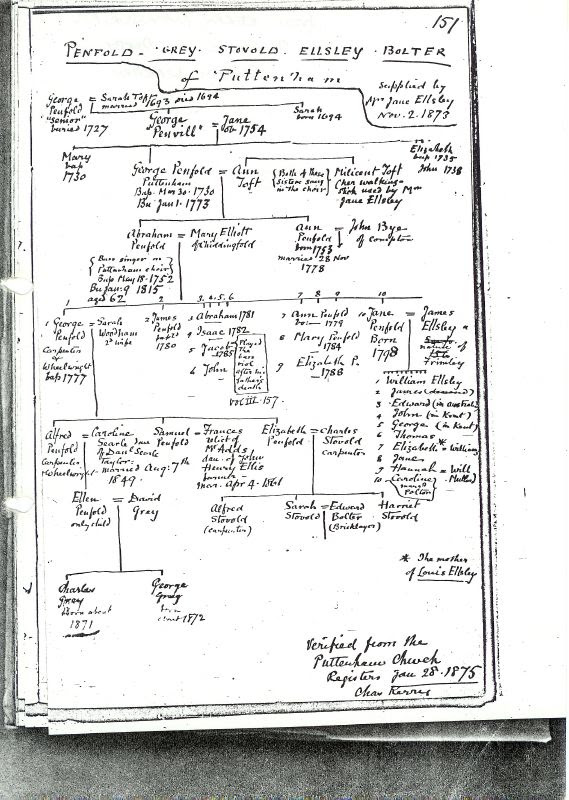 151
PENFOLD - GREY - STOVOLD ELLSLEY - BOLTER
of Puttenham
Supplied by
Mrs Jane Ellsley
Nov. 2. 1873
George = Sarah Toft
Penfold married 1693 died 1694
"Senior"
buried 1727
George = Jane
Penvill" ob 1754
Sarah
born 1694
Mary
bap
1730
George Penfold = Ann
Puttenham Toft
Bap. Mar 30. 1730
Bu. Jan 1. 1773
Both & three
sisters sang
in the choir
Milicent Toft
(her walking
stick used by Mrs
Jane Ellsley
Elizabeth
bap 1735
John 1738
Abraham = Mary Elliott
Penfold of Chiddingfold
Bass singer in
Puttenham choir
Bap May 18. 1752
Bu. Jan. 9 1815
aged 62
Ann = John Bye
Penfold of Compton
born 1753
married 28 Nov
1778
1 2 3. 4. 5. 6 7 8 9 10
George = Sarah
Penfold Woodham
Carpenter 2d wife
& Wheelwright
bap 1777
2 James
Penfold
bapt
1780
3 Abraham 1781
4 Isaac 1782
5 Jacob 1785
6 John
Played
the
bass
viol
after his
father's
death
Vol III. 157.
7 Ann Penfold
1779
8 Mary Penfold
1784
9 Elizabeth P.
1788
10 Jane = James
Penfold Ellsley
Born native of
1798 Frimley
1 William Ellsley
2 James (deceased)
3 Edward (in Austral
4 John (in Kent)
5 George (in Kent)
6 Thomas
7 Elizabeth * = William
8 Jane
9 Hannah = Will
10 Caroline
Alfred = Caroline
Penfold Searle dau
Carpenter of Danl Searle
Wheelwright Taylor.
married Aug: 7th
1849.
Samuel = Frances
Penfold relict of
Mr Adds
dau. of John
Henry Ellis
farmer
mar. Apr 4. 1861
Elizabeth = Charles
Penfold Stovold
carpenter
Ellen = David
Penfold Grey
only child
Alfred
Stovold
(carpenter)
Sarah = Edward
Stovold Bolter
(Bricklayer)
Harriet
Stovold
* The mother
of Louis Ellsley
Charles
Grey
Born about
1871
George
Gray
born
about 1872
Verified from the
Puttenham Church
Registers Jan 28. 1875
Chas Kerry